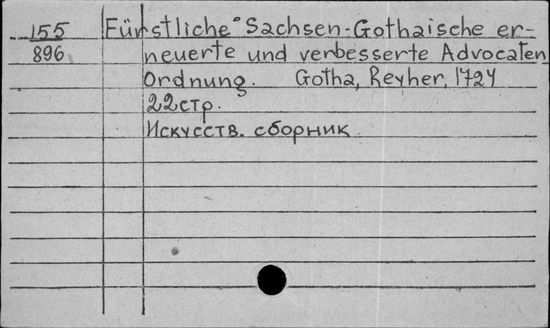 155 Fürstliche Sachsen-Gothaische er-
896 neuerte und verbesserte Advocaten
Ordnung. Gotha, Reyher, 1724
22стр.
Искусств. сборник